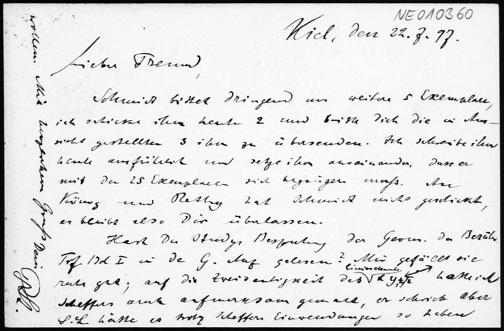 NE010360
Kiel, den 22.7.97.
Lieber Freund,
Schmidt bittet dringend um weitere 5 Exemplare,
ich schicke ihm heute 2 und bitte Dich die in Aus-
sicht gestellten 3 ihm zu übersenden. Ich schreibe ihm
heute ausführlich und setze ihm auseinander, dass er
mit den 25 Exemplaren sich begnügen muss. An
König und Réthy hat Schmidt nicht geschickt,
es bleibt also Dir überlassen.
Hast Du Studys Besprechung der Geom. der Berühr.
Trf Bd I in de G. Anz gelesen? Mir gefällt sie
recht gut; auf die Zweideutigkeit des hatte ich
Scheffers auch aufmerksam gemacht, er schrieb aber
S.L. hätte es trotz Scheffers Einwendungen so haben
wollen. Mit herzlichem Gruß Dein